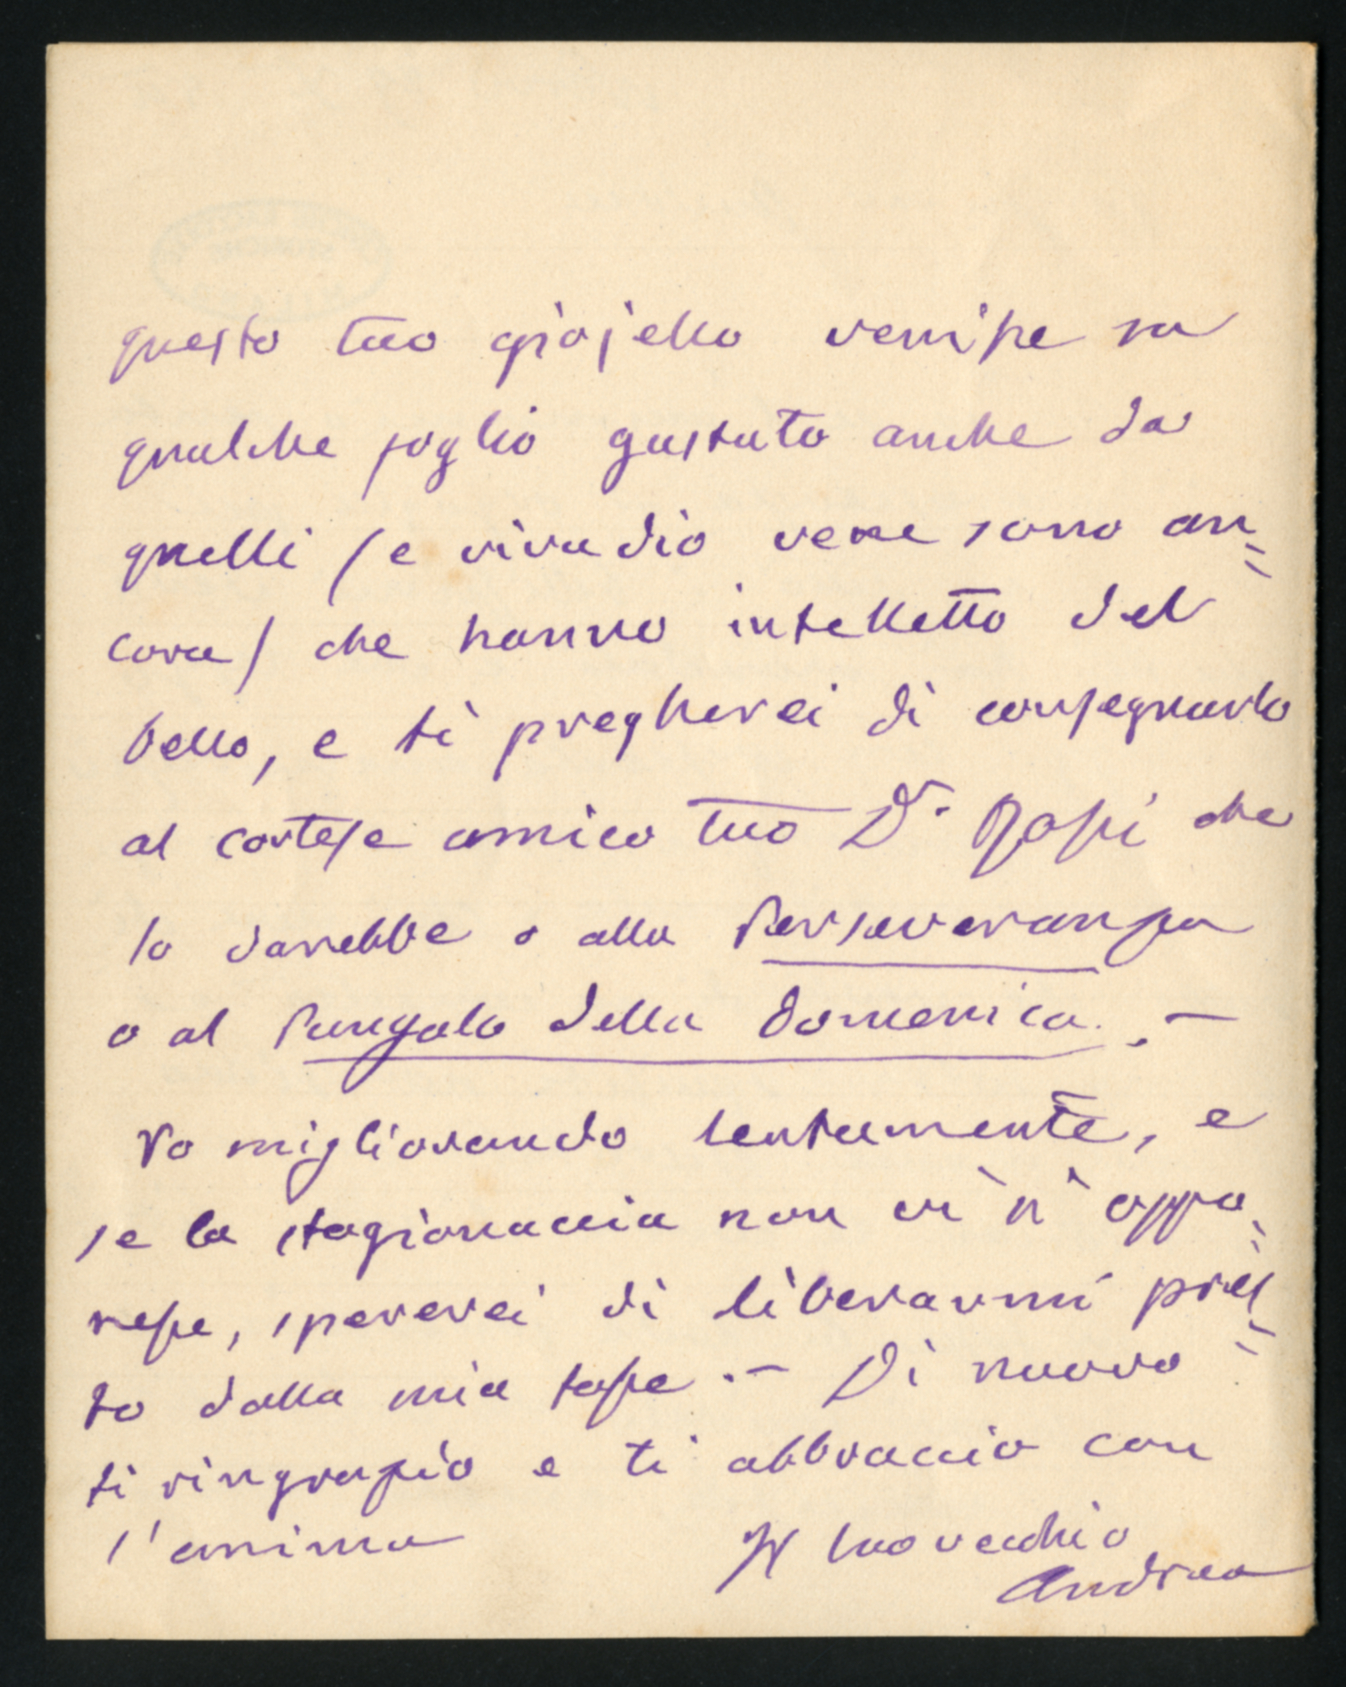 questo tuo giojello venisse su
qualche foglio gustato anche da
quelli (e vivaddio vene sono an=
cora) che hanno intelletto del
bello, e ti pregherei di consegnarlo
al cortese amico tuo Dr. Rossi che
lo darebbe o alla Perseveranza
o al Pungolo della Domenica. —
Vo migliorando lentamente, e
se la stagionaccia non vi s'oppo=
nesse, spererei di liberarmi pres=
to dalla mia tosse. — Di nuovo
ti ringrazio e ti abbraccio con
l'anima
Il tuo vecchio
Andrea